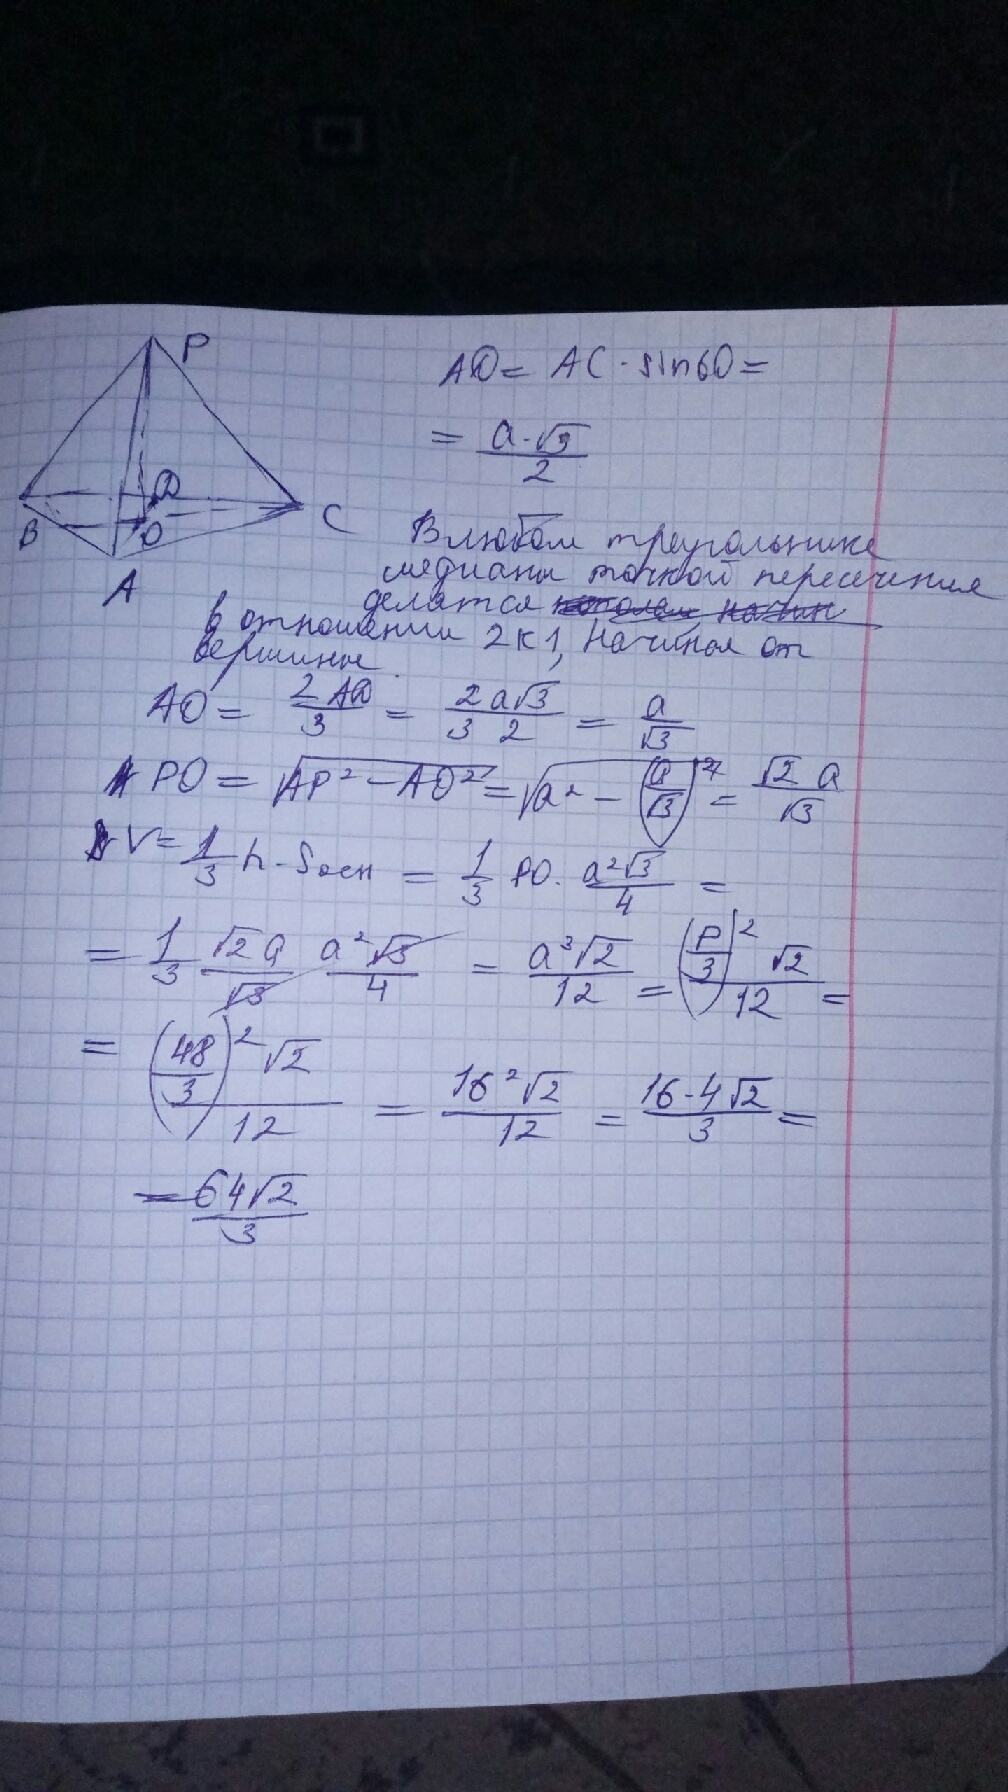 P
B
D
O
C
A
AD = AC · sin60 =
= a·√3 / 2
В любом треугольнике
медианы точкой пересечения
делятся
в отношении 2 к 1, начиная от
вершины
AO = 2AD / 3 = 2a√3 / 3 2 = a / √3
PO = √(AP² – AO²) = √(a² – (a/√3)²) = √2 a / √3
V = 1/3 h · Sосн = 1/3 PO · a²√3 / 4 =
= 1/3 √2 a / √3 a²√3 / 4 = a³√2 / 12 = (P/3)² √2 / 12 =
= (48/3)² √2 / 12 = 16²√2 / 12 = 16·4√2 / 3 =
= 64√2 / 3